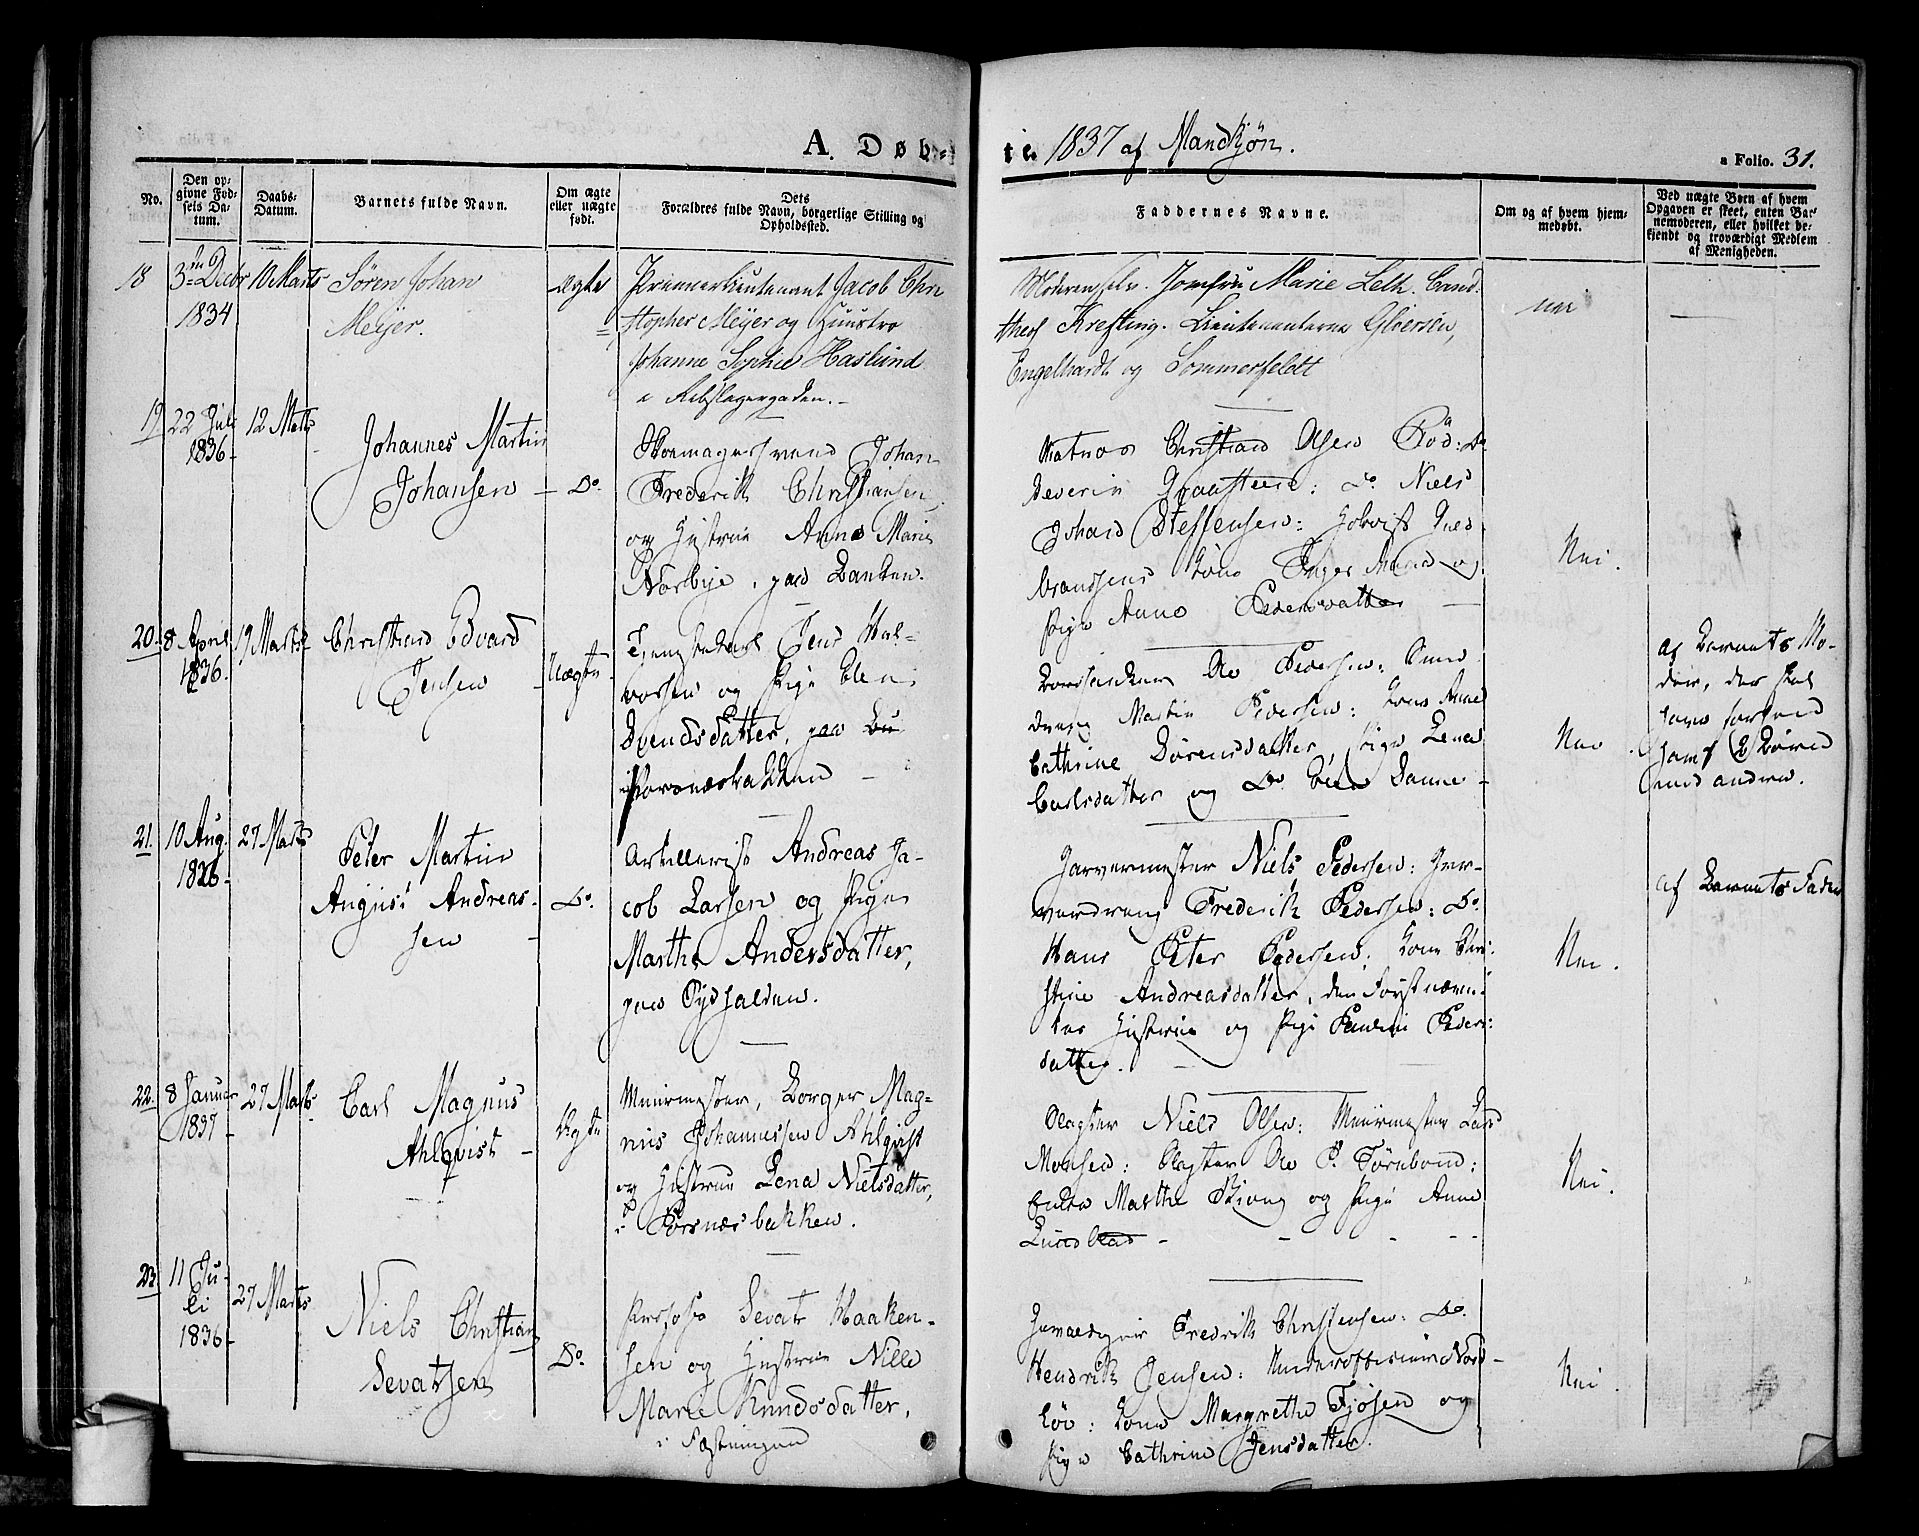 A. Døb-
te. 1837 af Mandkjøn.
a Folio. 31.
No.
Den op-
givne Fød-
sels Da-
tum.
Daabs-
Datum.
Barnets fulde Navn.
Om ægte
eller uægte
født.
Dets
Forældres fulde Navn, borgerlige Stilling og
Opholdssted.
Faddernes Navne.
Om og af hvem hjem-
medøbt.
Ved uægte Børn af hvem
Opgaven er skeet, enten Bar-
nemoderen, eller hvilket be-
kjendt og troværdigt Medlem
af Menigheden.
18
1834
10 Marts
Søren Johan
Meijer.
Ægte
Premierlieutenant Jacob Chri
stopher Meijer og Huustro
Johanne Sophie Haslund
Rebslagergaden.
Moderen selv. Jomfru Marie Leth. Cand.
theol Krefting. Lieutenanterne Gløersen,
Engelhardt og Sommerfeldt
nei
19
22 Juli
1836
12 Marts
Johannes Martin
Johansen
Do.
Skomagersvend Johan
Frederik Christiansen,
og Hustrue Anne Marie
Norbye, paa Banken.
Matros Christian Olsen Röd: Do
Severin Graasteen: Do Niels
Johan Steffensen:
Kone Inger og
Pige Anne Pedersdatter
Nei.
20.
8 April
1836.
19 Marts
Christian Edvard
Jensen
Uægte
Tjenestekarl Jens Hal-
vorsen og Pige Eleni
Svendsdatter, paa
Ole Pedersen:
Martin Pedersen: Kone Anne
Cathrine Sørensdatter, Pige Lena
Carlsdatter og Do.
Nei
af Barnets Mo-
der, der skal
have forhen
havt 2 Børn
med andre.
21.
10 Aug.
27 Marts
Peter Martin
August Andreas-
sen
Do.
Artillerist Andreas Ja-
cob Larsen og Pige
Marthe Andersdatter,
paa Sydhalden.
Garvermester Niels Pedersen: Gar-
verdreng Frederik Pedersen: Do.
Hans Peter Pedersen: Kone Chri-
stine Andreasdatter, den Førstnævn-
tes Hustrue og Pige Pauline Peders-
datter.
Nei.
af Barnets Fader
22.
8 Januar
1837
27 Marts
Carl Magnus
Ahlqvist
Ægte
Muurmester, Borger Mag-
nus Johannessen Ahlqvist
og Hustrue Lena Nielsdatter,
i Pørsnæsbakken.
Slagter Niels Olsen: Muurmester Lars
Monsen: Slagter Ole P. Tørnbom:
Enke Marthe og Pige Anne
Lundblad
Nei.
23
11 Ju-
li
1836
27 Marts
Niels Christian
Sevatsen
Do.
Sevat Haaken-
sen og Hustrue Nille
Marie Knudsdatter,
i Fæstningen
Fredrik Christensen: Do.
Hendrik Jensen: Underofficeer Nord-
Kone Margrethe Fjøsen og
Pige Cathrine Jensdatter.
Nei.